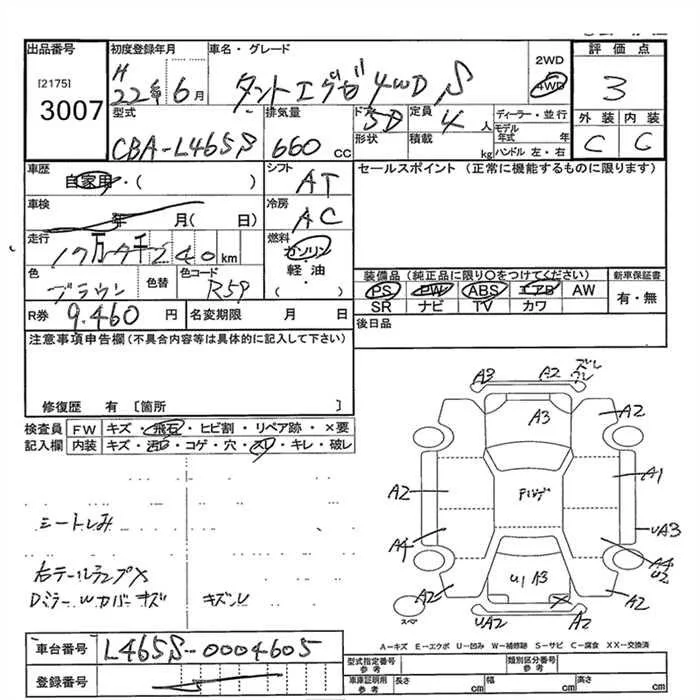 出品番号 初度登録年月 車名・グレード 2WD 評価点
[2175] H 22年 6月 タントエグゼ4WD S 4WD 3
3007
型式 排気量 ドア 5D 定員 4人 ディーラー・並行 外装 内装
CBA-L465S 660 CC 形状 積載 kg モデル年式 年 C C
ハンドル 左・右
車歴 シフト セールスポイント(正常に機能するものに限ります)
自家用・( ) AT
車検 年 月( 日) 冷房 AC
走行 燃料
km ガソリン
色 色替 色コード 軽油 装備品(純正品に限り○をつけてください) 新車保証書
ブラウン R59 ( ) PS PW ABS エアB AW 有・無
SR ナビ TV カワ
R券 9.460円 名変期限 月 日 後日品
注意事項申告欄(不具合内容等は具体的に記入して下さい)
修復歴 有 [箇所 ]
検査員 FW キズ・飛石・ヒビ割・リペア跡・×要
記入欄 内装 キズ・汚レ・コゲ・穴・スレ・キレ・破レ
A3 A2 ズレ
A3 A2
A2 A1
A4 UA3
A4
U2
U1 A3
A2 A2
UA2 A2
スペア
シートしみ
右テールランプX
Dミラーウカバーキズ キズU
A-キズ E-エクボ U-凹み W-補修跡 S-サビ C-腐食 XX-交換済
車台番号 L465S-0004605 型式指定番号 参考 類別区分番号 参考
登録番号 車庫証明用 参考 長さ cm 幅 cm 高さ cm